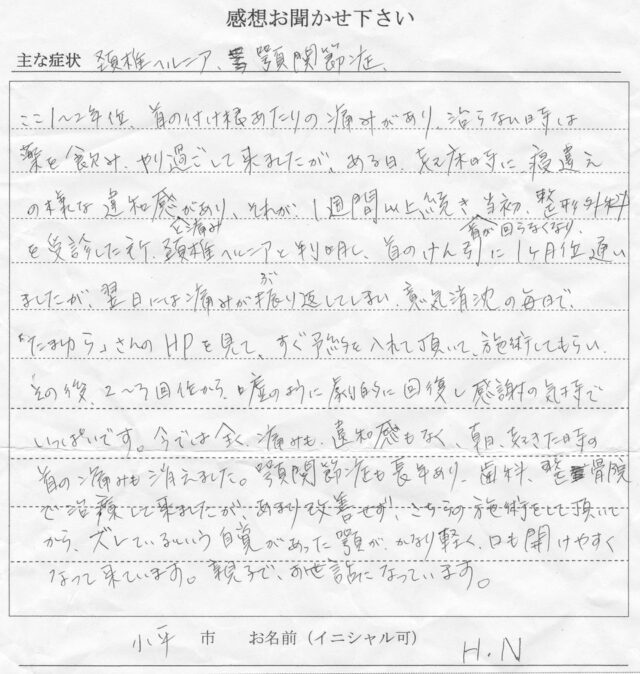 感想お聞かせ下さい
主な症状 頚椎ヘルニア、顎関節症、
ここ1〜2年位、首の付け根あたりの痛みがあり、治らない時は
薬を飲み、やり過ごして来ましたが、ある日、起床時に寝違え
の様な違和感と痛みがあり、それが、1週間以上続き、首が回らなくなり、当初、整形外科
を受診した所、頚椎ヘルニアと判明し、首のけん引に1ヶ月位通い
ましたが、翌日には痛みがぶり返してしまい、意気消沈の毎日で、
「たまゆら」さんのHPを見て、すぐ予約を入れて頂いて、施術してもらい
その後、2〜3回位から、嘘のように劇的に回復し感謝の気持で
いっぱいです。今では全く、痛みも、違和感もなく、朝、起きた時の
首の痛みも消えました。顎関節症も長年あり、歯科、整骨院
で治療して来ましたが、あまり改善せず、こちらの施術をして頂いて
から、ズレているという自覚があった顎が、かなり軽く、口も開けやすく
なって来ています。親子で、お世話になっています。
小平 市 お名前（イニシャル可） H.N